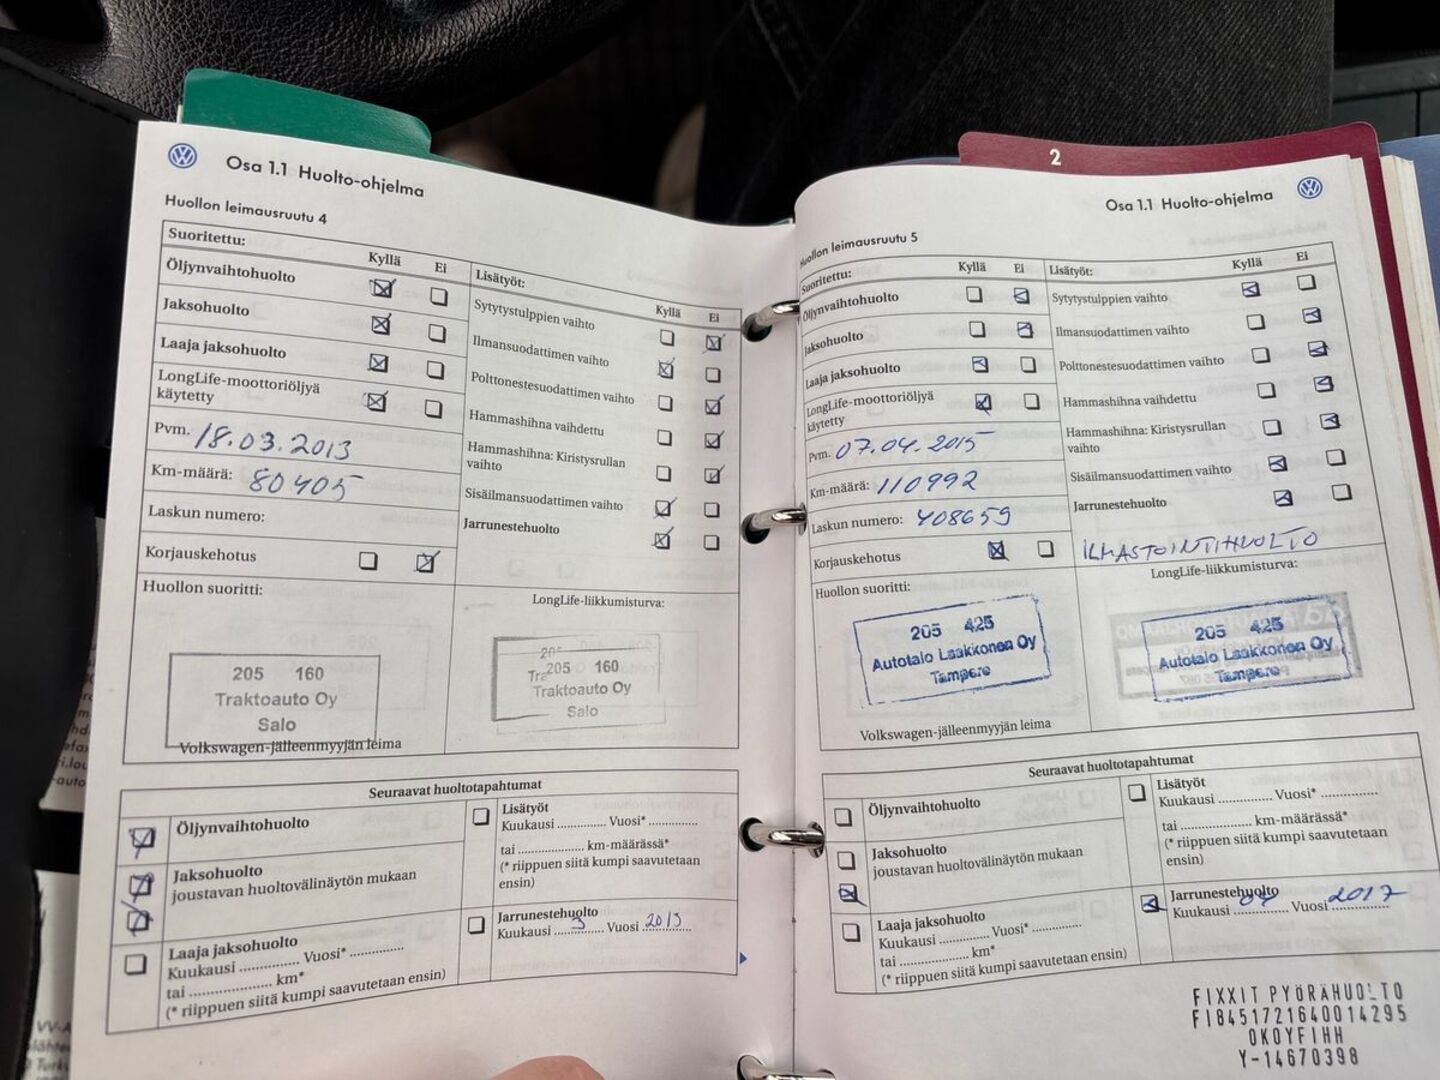 Osa 1.1 Huolto-ohjelma
Huollon leimausruutu 4
Suoritettu:
Kyllä Ei
Öljynvaihtohuolto
Jaksohuolto
Laaja jaksohuolto
LongLife-moottoriöljyä
käytetty
Pvm. 18.03.2013
Km-määrä: 80405
Laskun numero:
Korjauskehotus
Lisätyöt:
Kyllä Ei
Sytytystulppien vaihto
Ilmansuodattimen vaihto
Polttonestesuodattimen vaihto
Hammashihna vaihdettu
Hammashihna: Kiristysrullan
vaihto
Sisäilmansuodattimen vaihto
Jarrunestehuolto
Huollon suoritti:
205 160
Traktoauto Oy
Salo
Volkswagen-jälleenmyyjän leima
LongLife-liikkumisturva:
205 160
Traktoauto Oy
Salo
Seuraavat huoltotapahtumat
Öljynvaihtohuolto
Jaksohuolto
joustavan huoltovälinäytön mukaan
Laaja jaksohuolto
Kuukausi .............. Vuosi* ..............
tai .................... km*
(* riippuen siitä kumpi saavutetaan ensin)
Lisätyöt
Kuukausi ............. Vuosi* .............
tai .................. km-määrässä*
(* riippuen siitä kumpi saavutetaan
ensin)
Jarrunestehuolto
Kuukausi ....3.... Vuosi 2015
2
Osa 1.1 Huolto-ohjelma
Huollon leimausruutu 5
Suoritettu:
Kyllä Ei
Öljynvaihtohuolto
Jaksohuolto
Laaja jaksohuolto
LongLife-moottoriöljyä
käytetty
Pvm. 07.04.2015
Km-määrä: 110992
Laskun numero: 408659
Korjauskehotus
Lisätyöt:
Kyllä Ei
Sytytystulppien vaihto
Ilmansuodattimen vaihto
Polttonestesuodattimen vaihto
Hammashihna vaihdettu
Hammashihna: Kiristysrullan
vaihto
Sisäilmansuodattimen vaihto
Jarrunestehuolto
ILMASTOINTIHUOLTO
Huollon suoritti:
205 425
Autotalo Laakkonen Oy
Tampere
Volkswagen-jälleenmyyjän leima
LongLife-liikkumisturva:
205 425
Autotalo Laakkonen Oy
Tampere
Seuraavat huoltotapahtumat
Öljynvaihtohuolto
Jaksohuolto
joustavan huoltovälinäytön mukaan
Laaja jaksohuolto
Kuukausi .............. Vuosi* ..............
tai .................... km*
(* riippuen siitä kumpi saavutetaan ensin)
Lisätyöt
Kuukausi ............. Vuosi* ..............
tai .................... km-määrässä*
(* riippuen siitä kumpi saavutetaan
ensin)
Jarrunestehuolto
Kuukausi 04 Vuosi 2017
FIXXIT PYÖRÄHUOLTO
FI8451721640014295
OKOYFIHH
Y-14670398